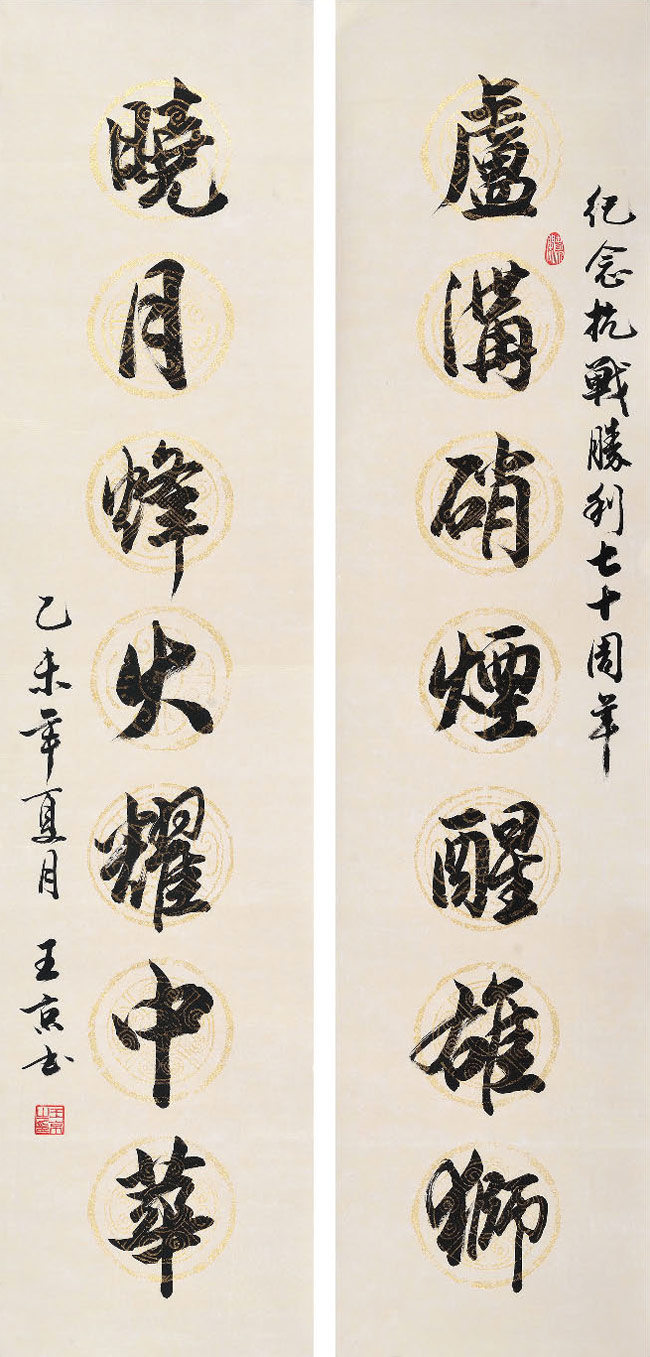 紀念抗戰勝利七十周年
盧溝硝煙醒雄獅
曉月蜂火耀中華
乙未年夏月 王京书
王京之印